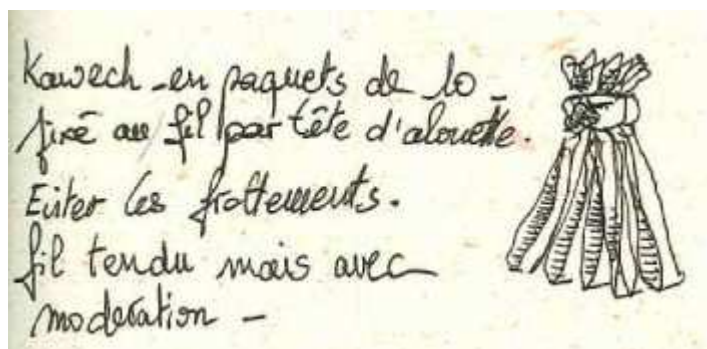 Kawech - en paquets de 10 -
fixé au fil par tête d'alouette.
Eviter les frottements.
fil tendu mais avec
moderation -